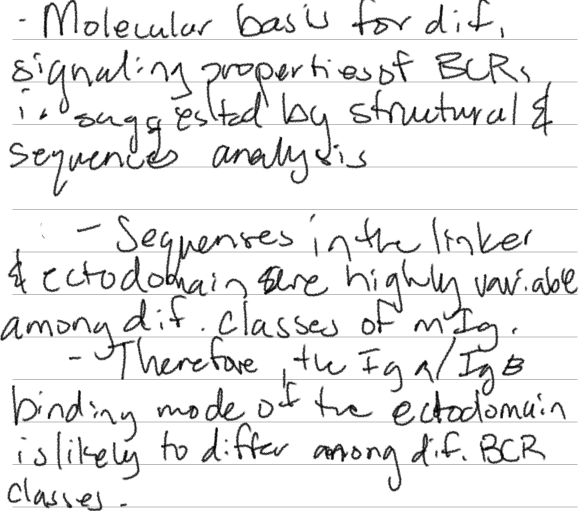 - Molecular basis for dif.
signaling properties of BCRs
is suggested by structural &
sequences analysis
- Sequenses in the linker
& ectodomain are highly variable
among dif. classes of mIg.
- Therefore, the Igα/Igβ
binding mode of the ectodomain
is likely to differ among dif. BCR
classes.